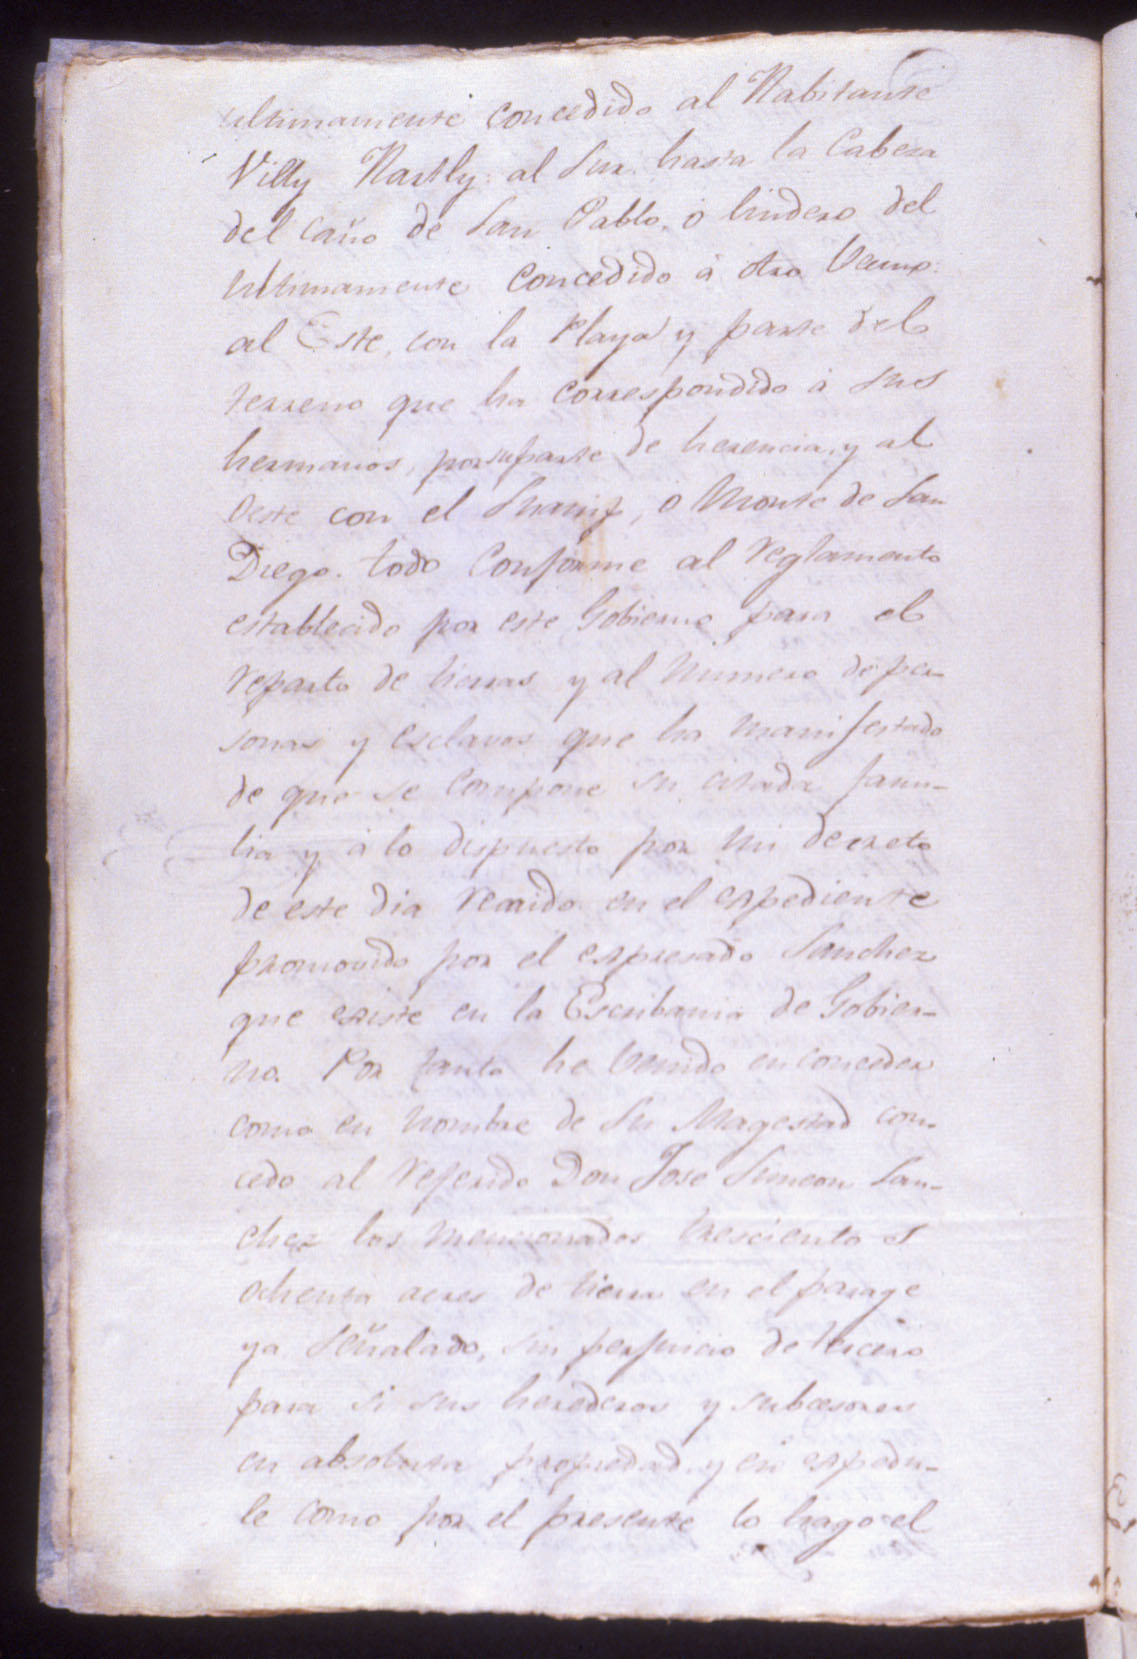 ultimamente concedido al Habitante
Villy Hartly: al Sur hasta la Cabeza
del Caño de San Pablo, o lindero del
ultimamente Concedido á otro Vecino:
al Este, con la Playa y parte del
terreno que ha correspondido á sus
hermanos, por su parte de herencia, y al
Oeste con el , o Monte de San
Diego. todo Conforme al Reglamento
establecido por este Gobierno para el
reparto de tierras y al Numero de per-
sonas y esclavos que ha manifestado
de que se compone su citada fami-
lia y á lo dispuesto por mi decreto
de este dia en el expediente
promovido por el expresado Sanchez
que existe en la Escribania de Gobier-
no. Por tanto he Venido en conceder
como en nombre de Su Magestad con-
cedo al referido Don Jose Simeon San-
chez los mencionados trescientos
ochenta acres de tierra en el parage
ya Señalado, sin perjuicio de tercero
para si sus herederos y subcesores
en absoluta propiedad, y en espedir-
le como por el presente lo hago el